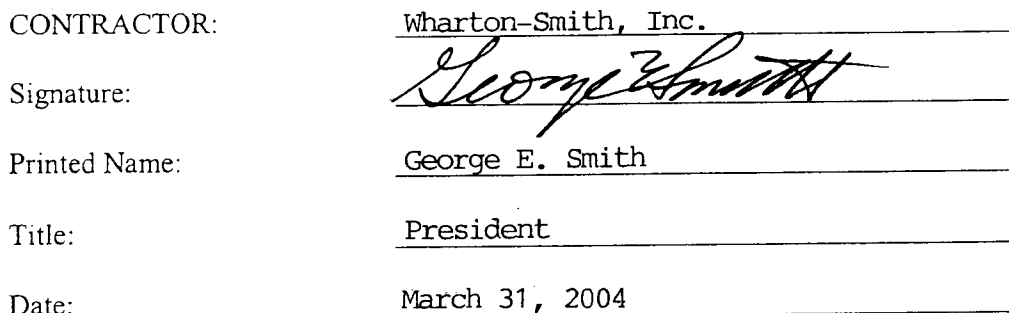 CONTRACTOR: Wharton-Smith, Inc.
Signature: George E Smith
Printed Name: George E. Smith
Title: President
Date: March 31, 2004